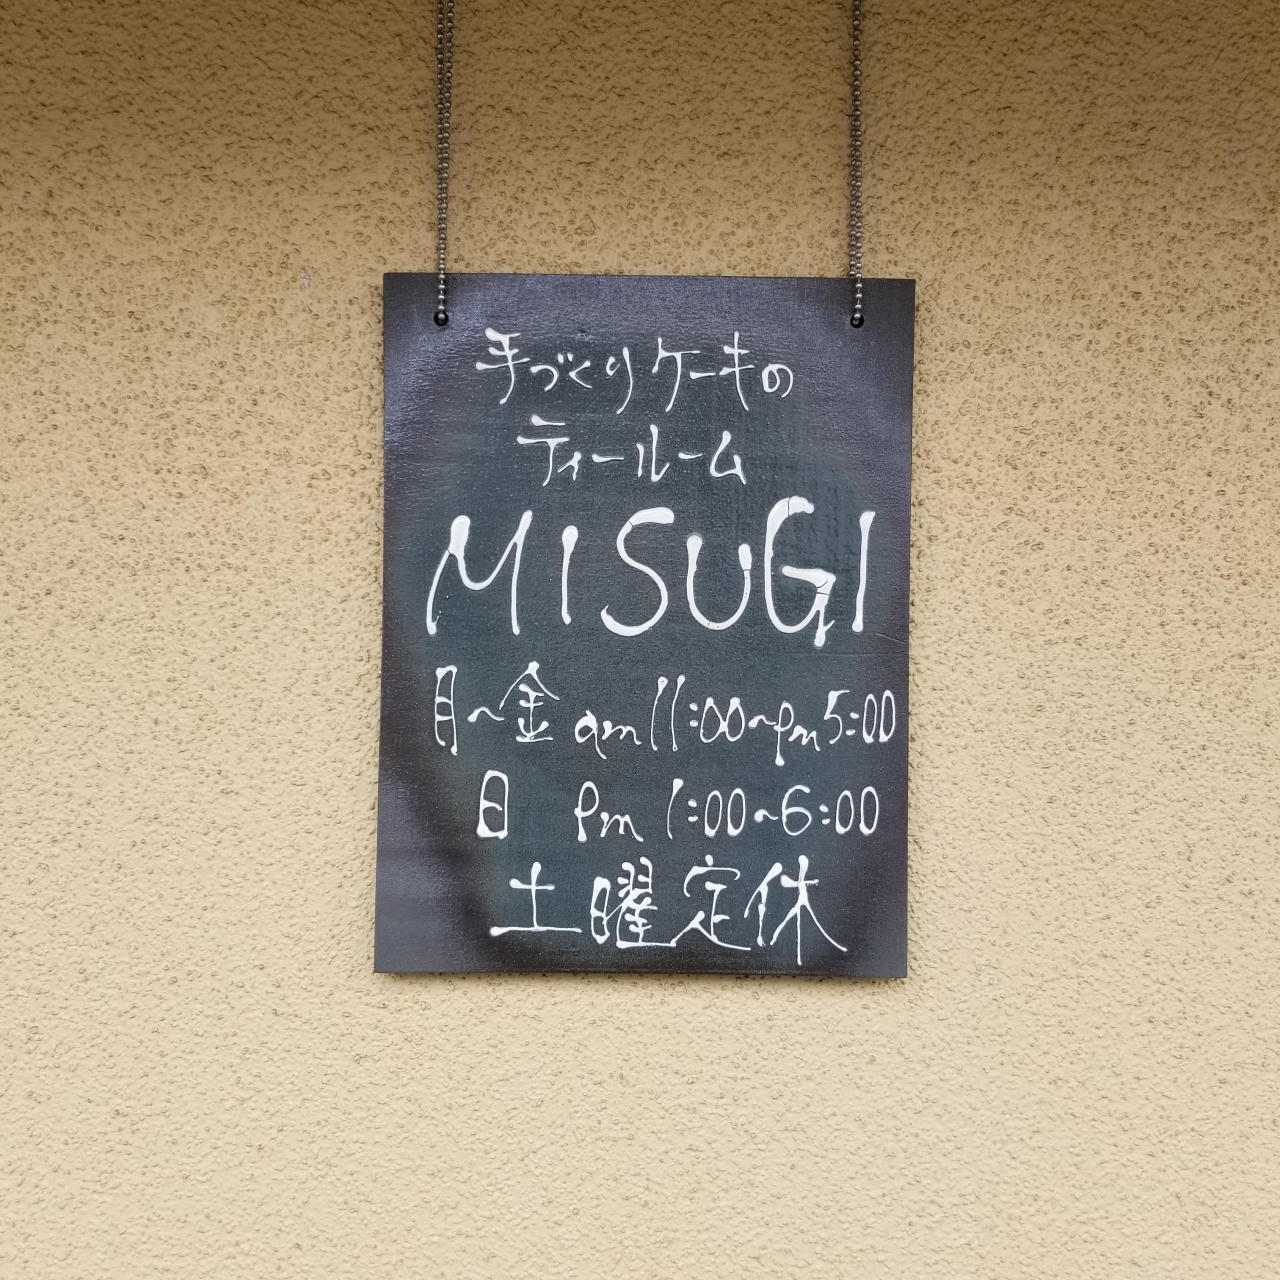 手づくりケーキの
ティールーム
MISUGI
月~金 am 11:00~pm 5:00
日 pm 1:00~6:00
土曜定休